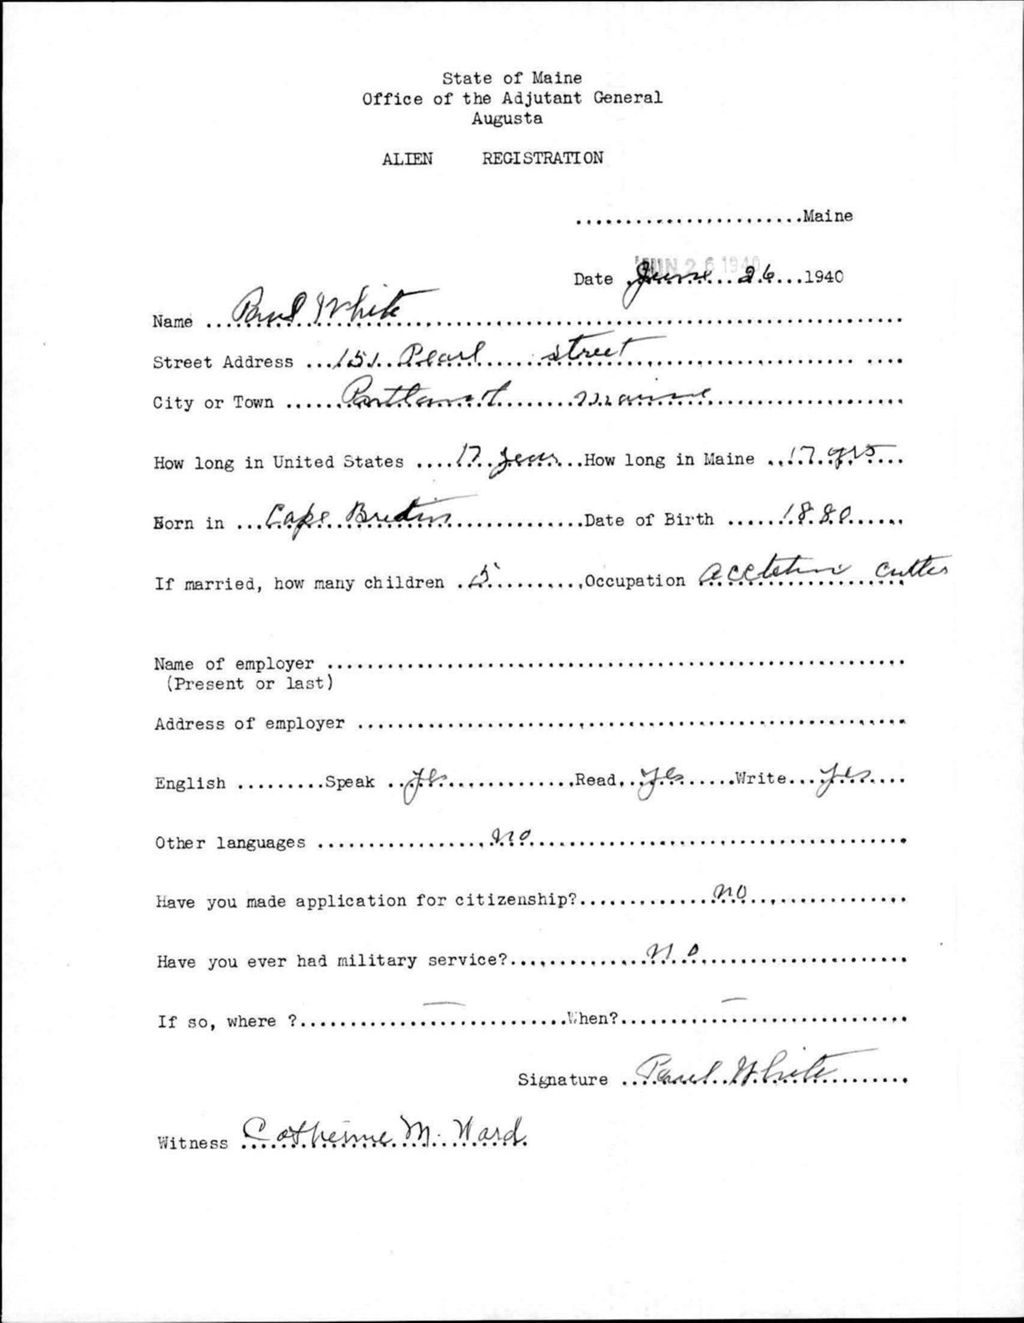 State of Maine
Office of the Adjutant General
Augusta
ALIEN REGISTRATION
.......................Maine
JUN 26 1940
Date June 26 1940
Name Paul White
Street Address 151 Pearl Street
City or Town Portland Maine
How long in United States 17 years How long in Maine 17 yrs
Born in Cape Breton Date of Birth 1880
If married, how many children 5 Occupation cutter
Name of employer
(Present or last)
Address of employer
English Speak yes Read yes Write yes
Other languages no
Have you made application for citizenship? no
Have you ever had military service? no
If so, where ? — When? —
Signature Paul White
Witness Catherine M. Ward